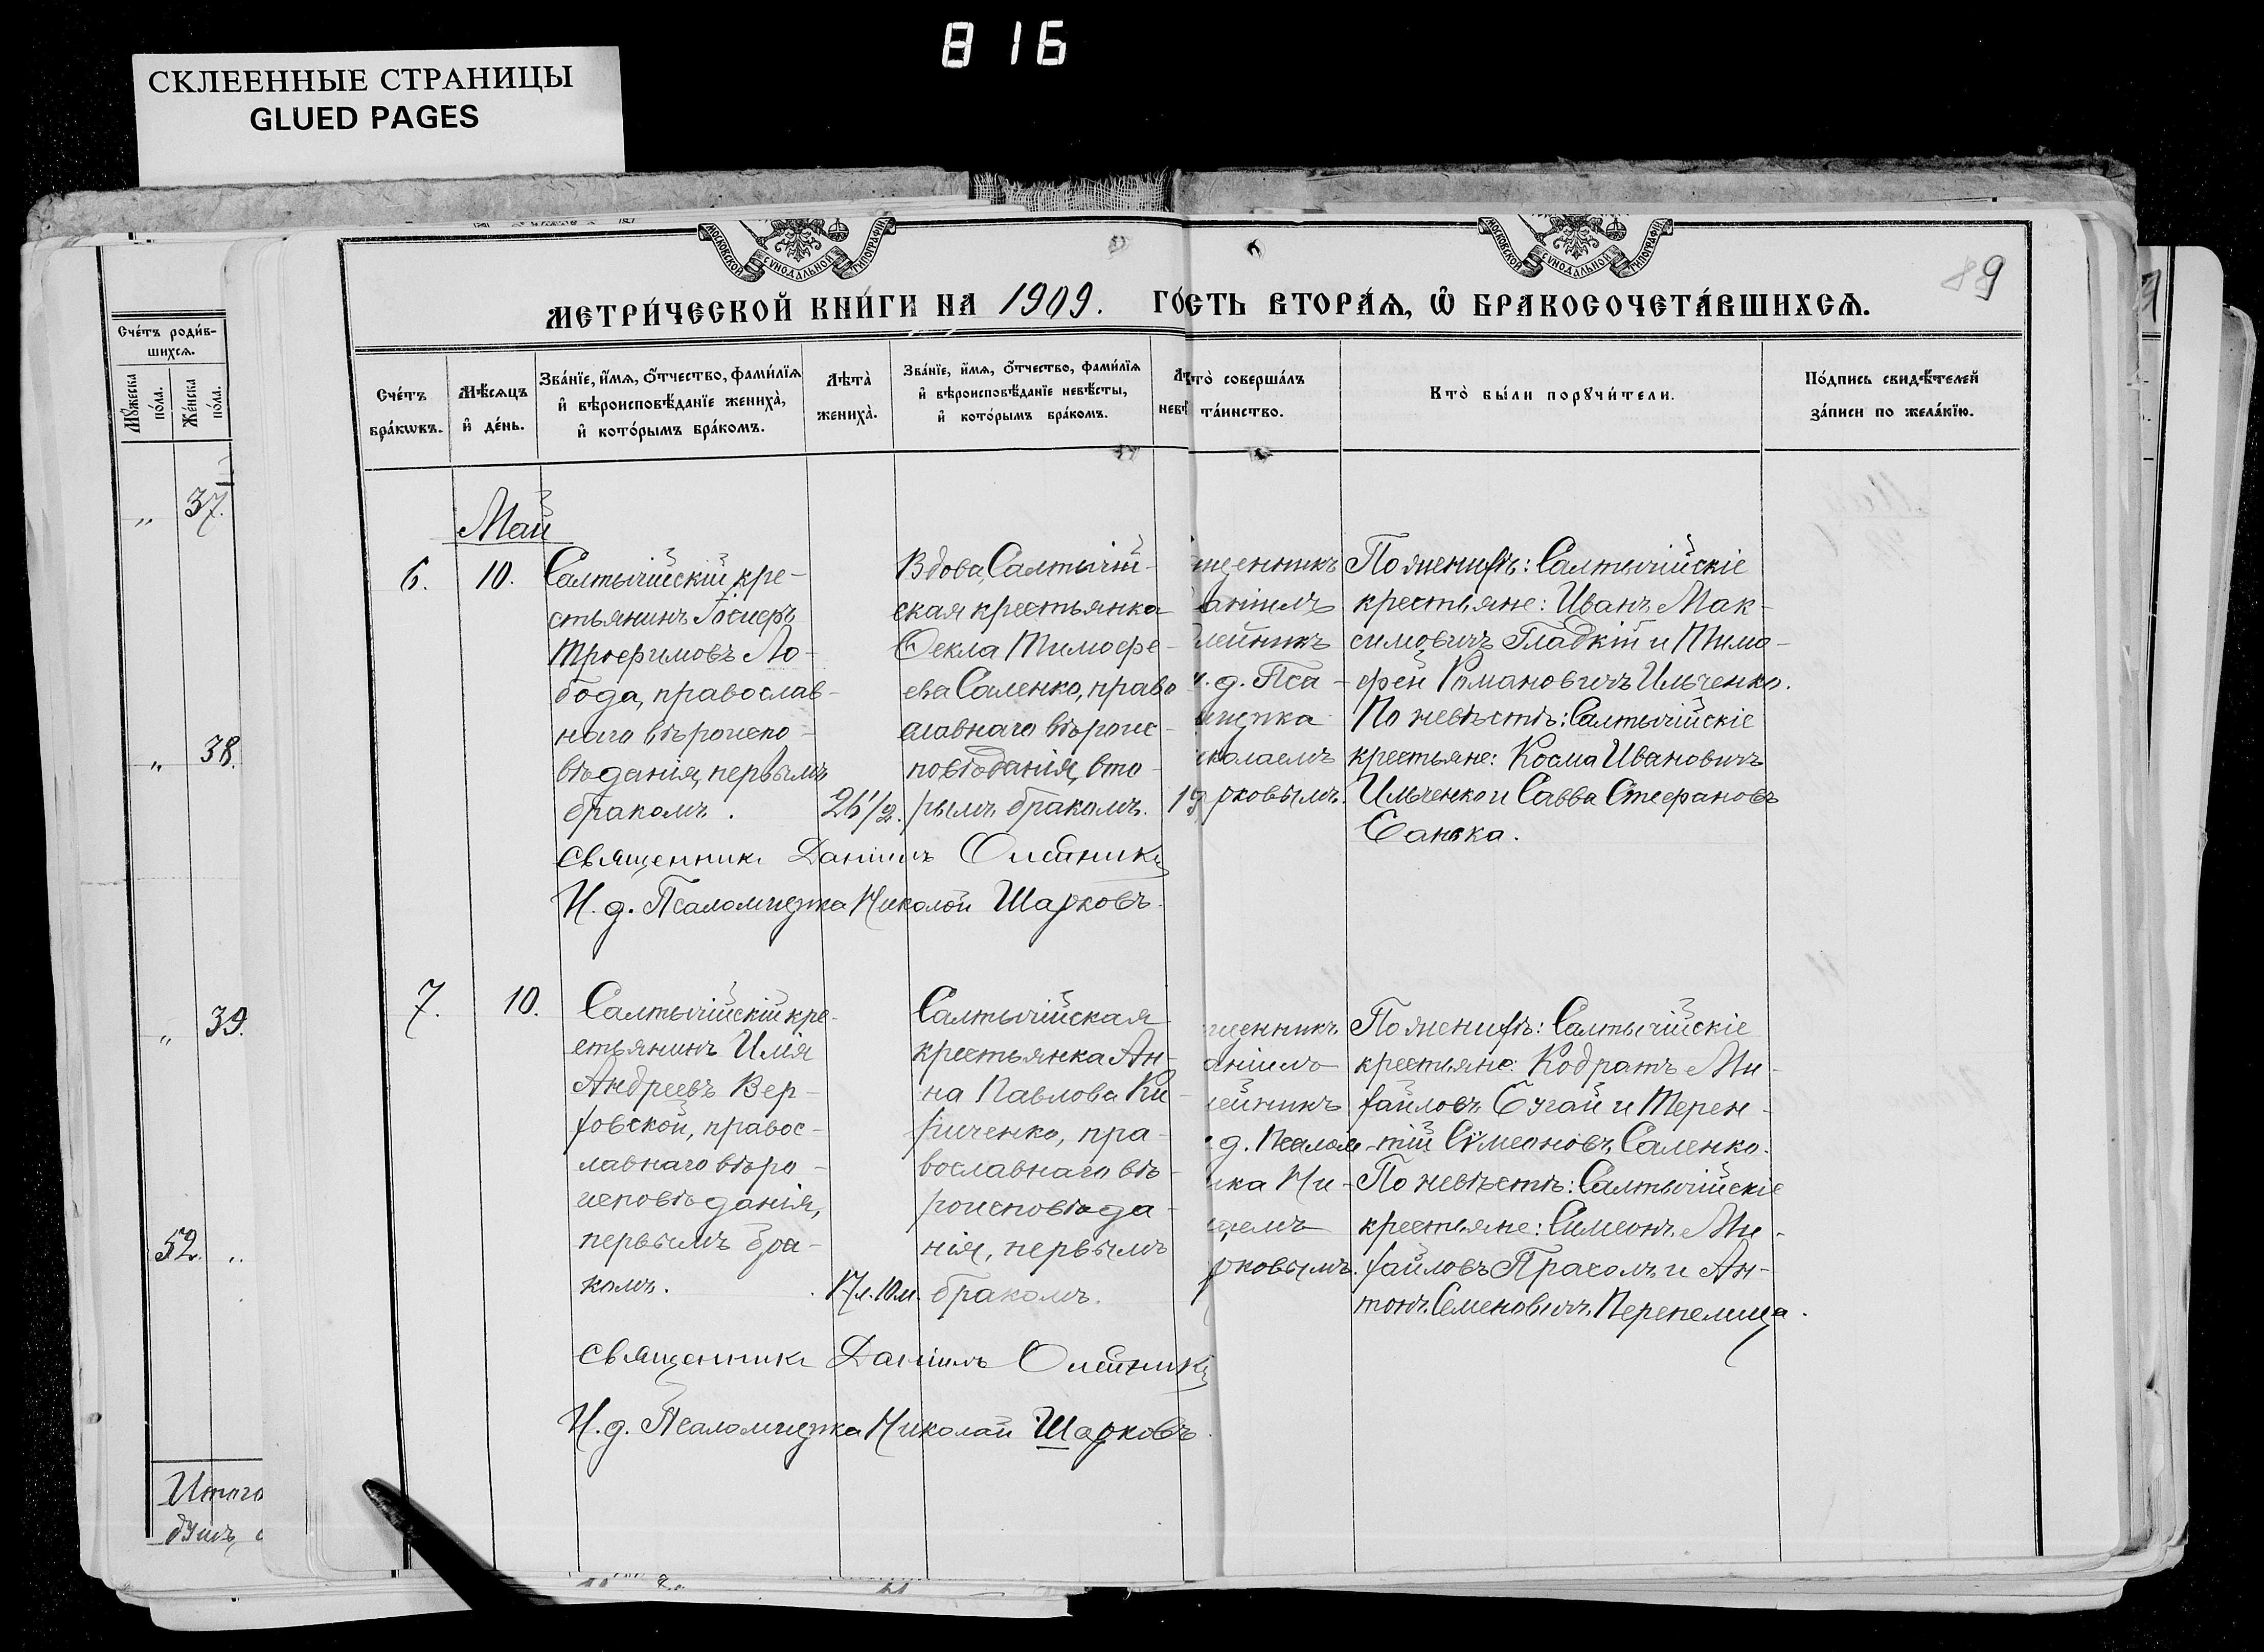 816
СКЛЕЕННЫЕ СТРАНИЦЫ
GLUED PAGES
МОСКОВСКОЙ СѴНОДАЛЬНОЙ ТИПОГРАФІИ
МОСКОВСКОЙ СѴНОДАЛЬНОЙ ТИПОГРАФІИ
89
МЕТРИ́ЧЕСКОЙ КНИ́ГИ НА 1909. ГО́
СТЬ ВТОРА́Ѧ, Ѽ БРАКОСОЧЕТА́ВШИХСѦ.
Сче́тъ роди́в-
шихсѧ.
Мꙋ́жеска по́ла.
Же́нска по́ла.
37.
38.
39.
52.
Итого
душъ
Сче́тъ
бра́кѡвъ.
Мѣ́сѧцъ
и҆ де́нь.
Зва́нїе, и҆́мѧ, ѻ҆́тчество, фами́лїѧ
и҆ вѣроисповѣ́данїе жениха̀,
и҆ кото́рымъ бра́комъ.
Лѣ́та
жениха̀.
Зва́нїе, и҆́мѧ, ѻ҆́тчество, фами́лїѧ
и҆ вѣроисповѣ́данїе невѣ́сты,
и҆ кото́рымъ бра́комъ.
Кто̀ соверша́лъ
та́инство.
Кто̀ бы́ли порꙋчи́тели.
По́дпись свидѣ́телей
за́писи по жела́нїю.
Май
6.
10.
Салтычійскій кре-
стьянинъ Іосифъ
Трофимовъ Ло-
бода, православ-
наго вѣроиспо-
вѣданія, первымъ
бракомъ.
26 1/2.
Вдова, Салтычій-
ская крестьянка
Ѳекла Тимофе-
ева Саленко, право
славнаго вѣроис-
повѣданія, вто-
рымъ бракомъ.
19
щенникъ
аніилъ
лейникъ
и. д. Пса-
мщика
колаемъ
рковымъ.
По женихѣ: Салтычійскіе
крестьяне: Иванъ Мак-
симовичъ Гладкій и Тимо-
фей Романовичъ Ильченко.
По невѣстѣ: Салтычійскіе
крестьяне: Косма Ивановичъ
Ильченко и Савва Стефановъ
Священникъ Даніилъ Олейникъ
И. д. Псаломщика Николай Шарковъ.
7.
10.
Салтычійскій кре-
стьянинъ Илія
Андреевъ Вер-
ховской, правос-
лавнаго вѣро-
исповѣданія,
первымъ бра-
комъ.
17 л. 10 м.
Салтычійская
крестьянка Ан-
на Павлова Ки-
риченко, пра-
вославнаго вѣ-
роисповѣда-
нія, первымъ
бракомъ.
щенникъ
аніилъ
ейникъ
. д. Псалом-
ика Ни-
аемъ
рковымъ.
По женихѣ: Салтычійскіе
крестьяне: Кодратъ Ми-
хайловъ Бугай и Терен-
тій Сѵмеоновъ Саленко.
По невѣстѣ: Салтычійскіе
крестьяне: Симеонъ Ми-
хайловъ Прахолъ и Ан-
тонъ Семеновичъ Перепелица.
Священникъ Даніилъ Олейникъ
И. д. Псаломщика Николай Шарковъ.